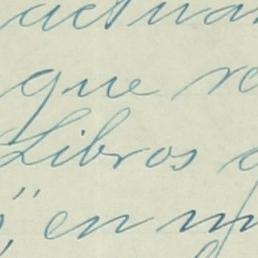 actua
que re
Libros
", en